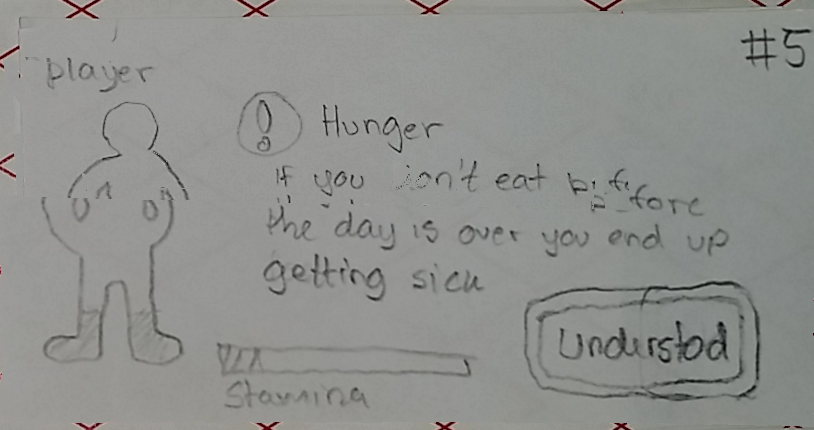 #5
player
! Hunger
If you don't eat before
the day is over you end up
getting sick
Understod
Stamina